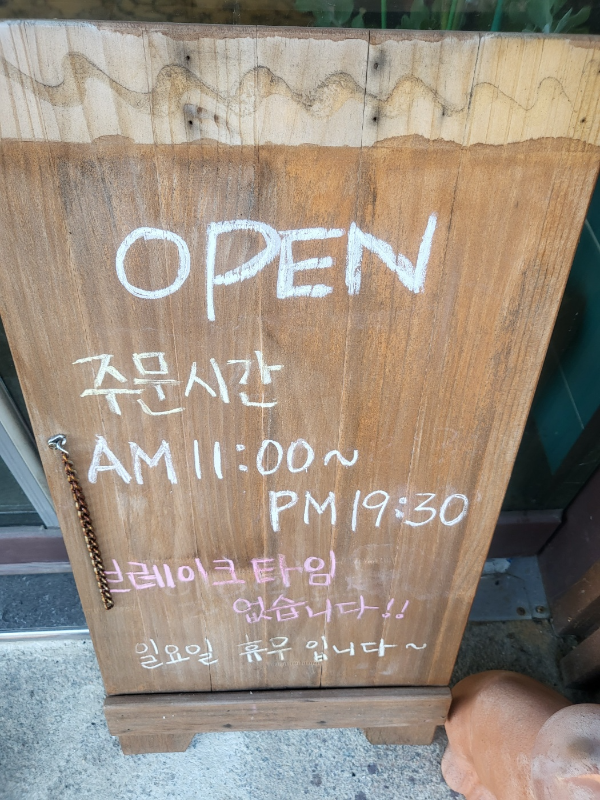 OPEN
주문시간
AM 11:00~
PM 19:30
브레이크 타임
없습니다!!
일요일 휴무 입니다~